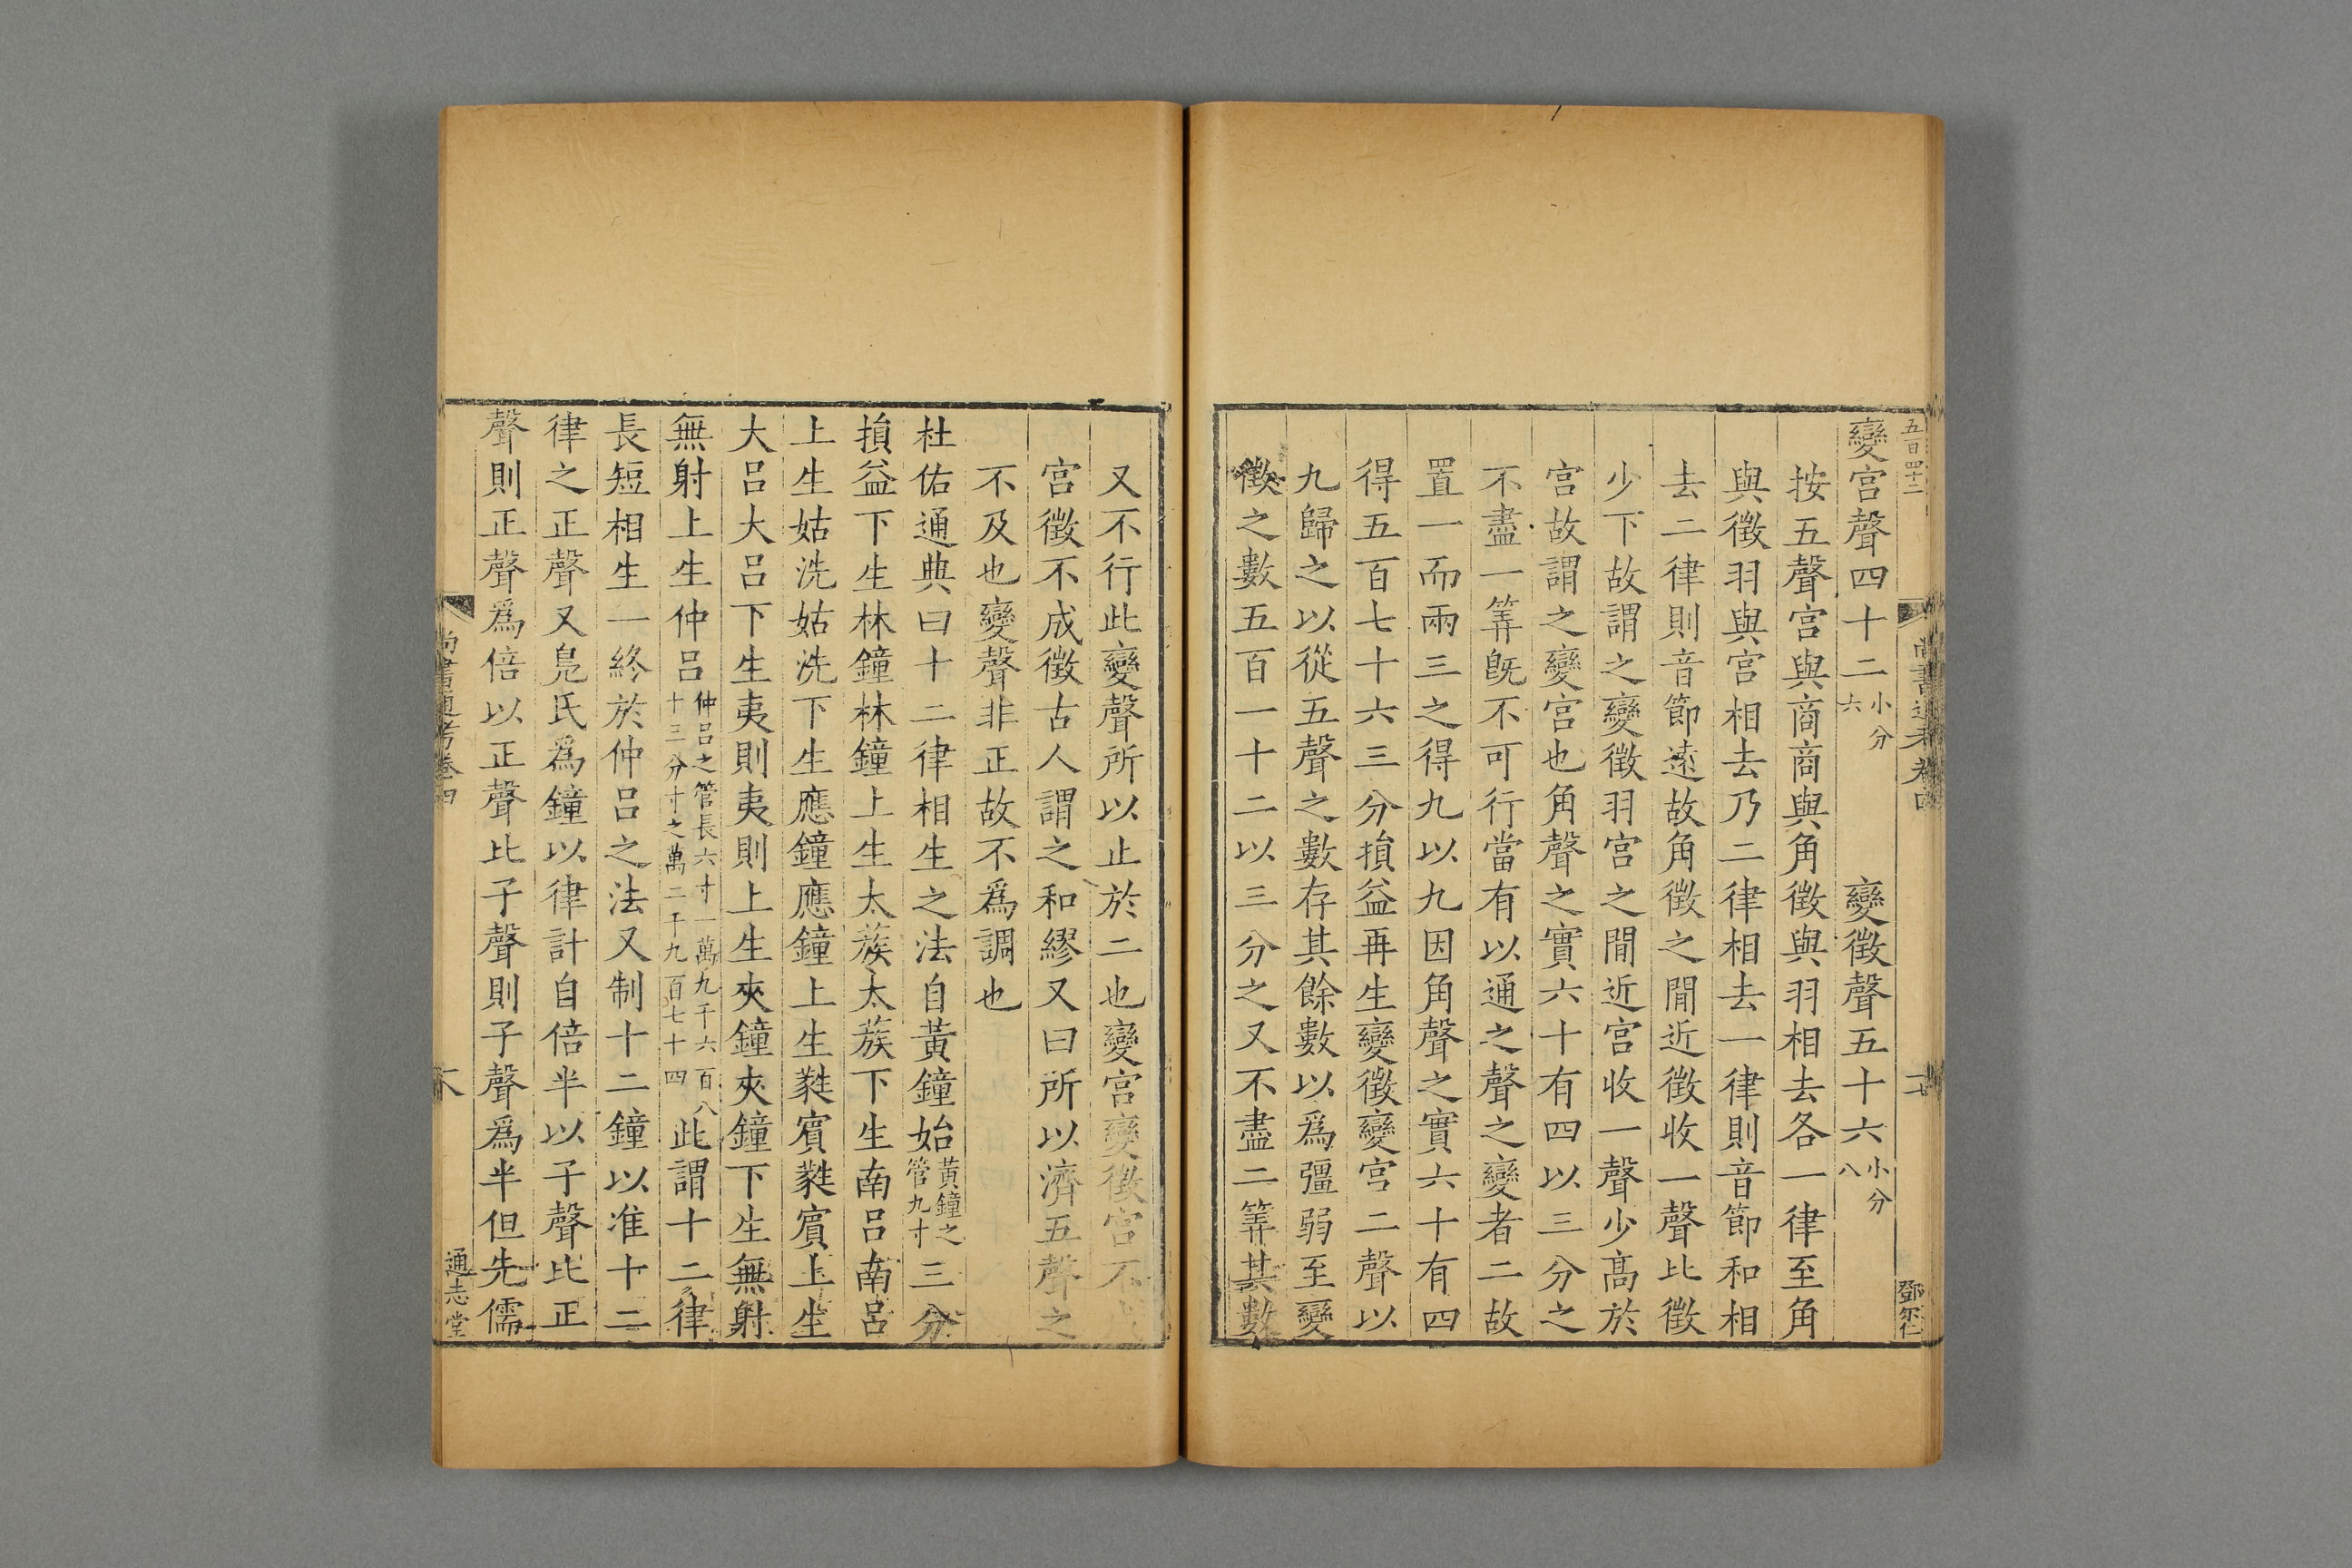 五百四十二
尚書通考卷四
十七
鄧尔仁
變宮聲四十二小分六 變徵聲五十六小分八
按五聲宮與商商與角徵與羽相去各一律至角
與徵羽與宮相去乃二律相去一律則音節和相
去二律則音節遠故角徵之閒近徵收一聲比徵
少下故謂之變徵羽宮之閒近宮收一聲少高於
宮故謂之變宮也角聲之實六十有四以三分之
不盡一筭旣不可行當有以通之聲之變者二故
置一而兩三之得九以九因角聲之實六十有四
得五百七十六三分損益再生變徵變宮二聲以
九歸之以從五聲之數存其餘數以爲彊弱至變
徵之數五百一十二以三分之又不盡二筭其數
又不行此變聲所以止於二也變宮變徵宮不
宮徵不成徵古人謂之和繆又曰所以濟五聲之
不及也變聲非正故不爲調也
杜佑通典曰十二律相生之法自黃鐘始黃鐘之管九寸三分
損益下生林鐘林鐘上生太蔟太蔟下生南呂南呂
上生姑洗姑洗下生應鐘應鐘上生蕤賓蕤賓上生
大呂大呂下生夷則夷則上生夾鐘夾鐘下生無射
無射上生仲呂仲呂之管長六寸一萬九千六百八十三分寸之萬二千九百七十四此謂十二律
長短相生一終於仲呂之法又制十二鐘以准十二
律之正聲又鳧氏爲鐘以律計自倍半以子聲比正
聲則正聲爲倍以正聲比子聲則子聲爲半但先儒
尚書通考卷四
通志堂